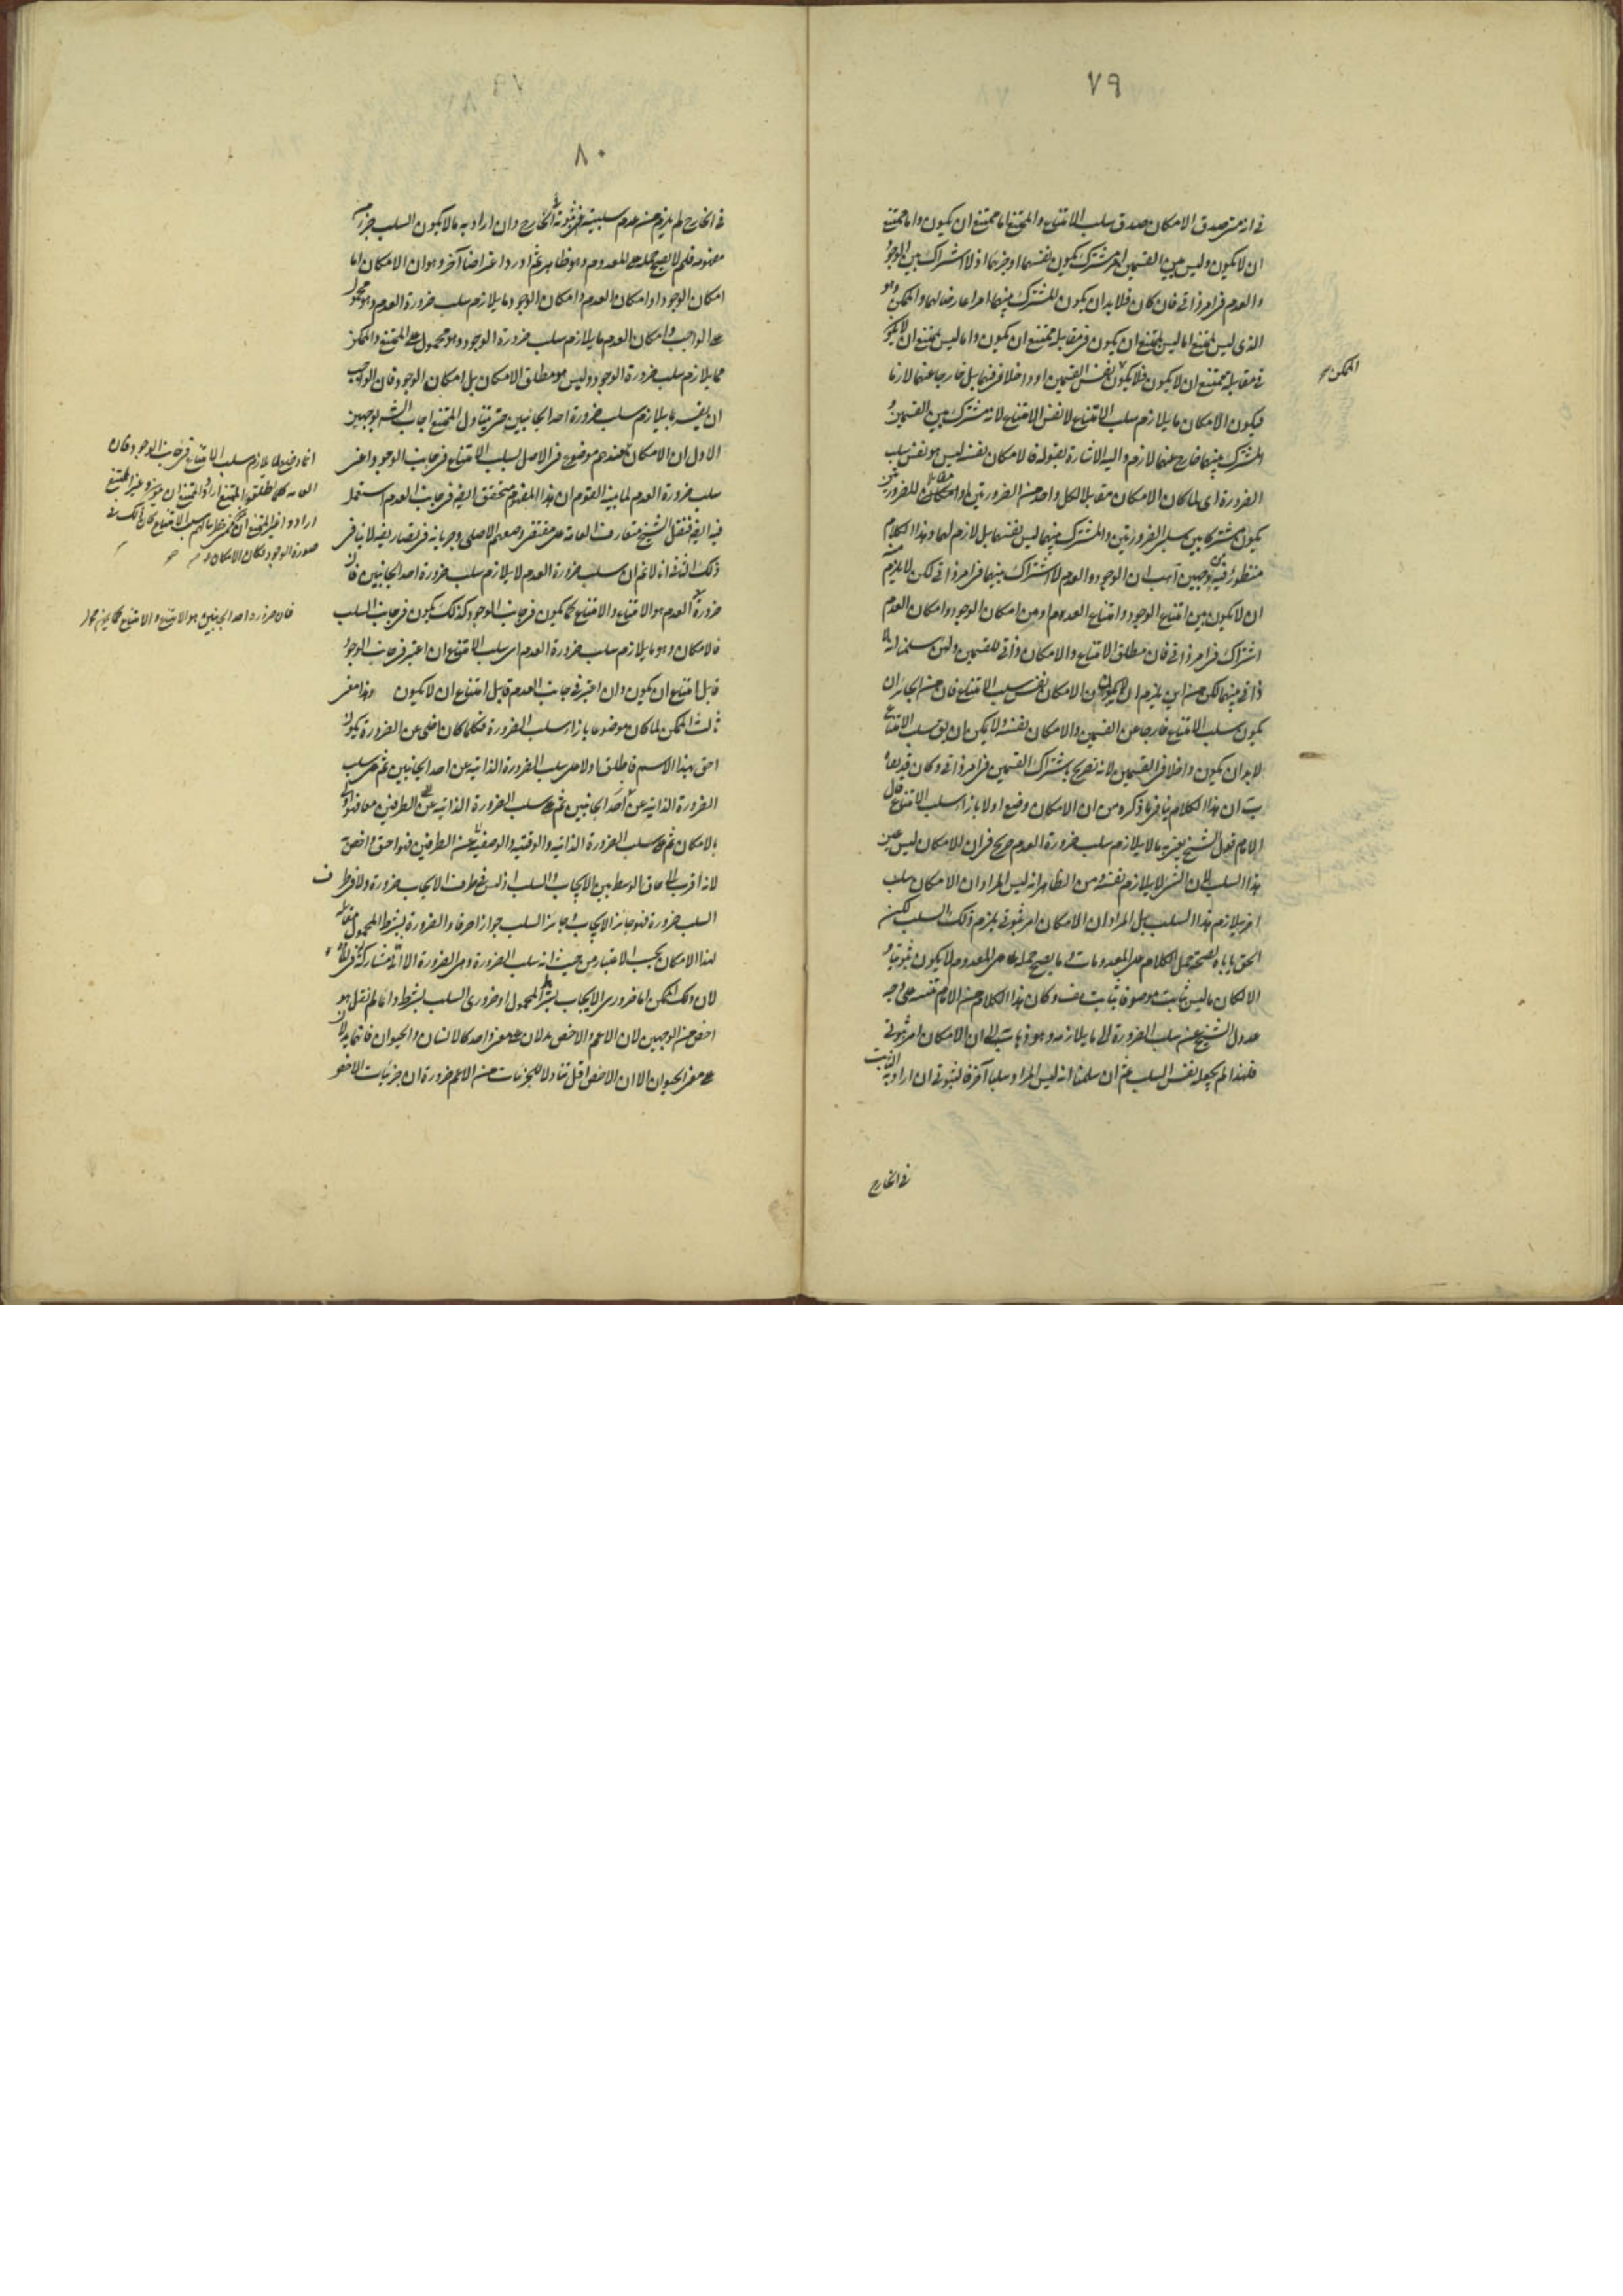 ٧٩
في انه متى صدق الامكان صدق سلب الامتناع والممتنع اما ممتنع ان يكون واما ممتنع
ان لا يكون وليس بين القسمين امر مشترك يكون نفسهما او جزئهما اذ لا اشتراك بين الوجود
والعدم في امر ذاتي فان كان فلا بد ان يكون المشترك بينهما امرا عارضا لهما والممكن وهو
الذي ليس بممتنع اما ليس بممتنع ان يكون في مقابلة ممتنع ان يكون واما ليس بممتنع ان لا يكون
في مقابلة ممتنع ان لا يكون فلا يكون نفس القسمين او داخلا فيهما بل خارجا عنهما لازما
فيكون الامكان ما يلازم سلب الامتناع لا نفس الامتناع لانه مشترك بين القسمين و
المشترك بينهما خارج عنهما لازم واليه الاشارة بقوله فالامكان نفسه ليس هو نفس سلب
الضرورة اي لما كان الامكان مقابلا لكل واحد من الضرورتين
يكون مشتركا بين سلبي الضرورتين والمشترك بينهما ليس نفسهما بل لازم لهما وهذا الكلام
منظور فيه من وجهين آ هب ان الوجود والعدم لا اشتراك بينهما في امر ذاتي لكن لا يلزم
ان لا يكون بين امتناع الوجود وامتناع العدم او بين امكان الوجود وامكان العدم
اشتراك في امر ذاتي فان مطلق الامتناع والامكان ذاتي للقسمين ولئن سلمنا انه لا
ذاتي بينهما لكن من اين يلزم ان لا يكون الامكان نفس سلب الامتناع فان من الجائز ان
يكون سلب الامتناع خارجا عن القسمين والامكان نفسه ولا يمكن ان يق سلب الامتناع
لا بد ان يكون داخلا في القسمين لانه تصريح باشتراك القسمين في امر ذاتي وكان قد نفاه
ب ان هذا الكلام ينافي ما ذكره من ان الامكان وضع اولا بازاء سلب الامتناع قال
الامام قول الشيخ يعني به ما لا يلازم سلب ضرورة العدم صريح في ان الامكان ليس عين
هذا السلب لان الشيء لا يلازم نفسه ومن الظاهر انه ليس المراد ان الامكان سلب
آخر يلازم هذا السلب بل المراد ان الامكان امر ثبوتي يلزم ذلك السلب لكن
الحق ياباه لصحة حمل الكلام على المعدومات وما يصح حمله على المعدوم لا يكون ثبوتيا و
الا لكان ما ليس بثابت موصوفا بثابت هف وكان هذا الكلام من الامام تنبيه على وجه
عدول الشيخ عن سلب الضرورة الى ما يلازمه وهو ذهابه الى ان الامكان امر ثبوتي
فلهذا لم يجعله نفس السلب ثم ان سلمنا انه ليس المراد سلبا آخر فالثبوتي ان اراد به الثابت
في الخارج
الممكن
٨٠
في الخارج لم يلزم من عدم سلبيته ثبوته في الخارج وان اراد به ما لا يكون السلب جزء
مفهومه فلم لا يصح حمله على المعدوم وهو ظاهر ثم اورد اعتراضا آخر وهو ان الامكان اما
امكان الوجود او امكان العدم وامكان الوجود ما يلازم سلب ضرورة العدم وهو محمول
على الواجب وامكان العدم ما يلازم سلب ضرورة الوجود وهو محمول على الممتنع والممكن
مما يلازم سلب ضرورة الوجود وليس هو مطلق الامكان بل امكان الوجود فان الواجب
ان يفسر بما يلازم سلب ضرورة احد الجانبين حتى يتناول الممتنع اجاب الش بوجهين
الاول ان الامكان عندهم موضوع في الاصل لسلب الامتناع في جانب الوجود واعني
سلب ضرورة العدم لما تنبه القوم ان هذا المفهوم متحقق ايضا في جانب العدم استعمل
فيه ايضا فنقل الشيخ متعارف العامة على مقتضى وضعهم الاصلي وجريانه في تصاريفه لا ينافي
ذلك الثاني انا لا نم ان سلب ضرورة العدم لا يلازم سلب ضرورة احد الجانبين فان
ضرورة العدم هو الامتناع والامتناع كما يكون في جانب الوجود كذلك يكون في جانب السلب
فالامكان وهو ما يلازم سلب ضرورة العدم اي سلب الامتناع ان اعتبر في جانب الوجود
قابل امتناع ان يكون وان اعتبر في جانب العدم قابل امتناع ان لا يكون وهذا معنى
ثالث الممكن لما كان موضوعا بازاء سلب الضرورة فكلما كان اخلى عن الضرورة يكون
احق بهذا الاسم فاطلق اولا على سلب الضرورة الذاتية عن احد الجانبين ثم على سلب
الضرورة الذاتية عن الطرفين معا فهو اولى
بالامكان ثم على سلب الضرورة الذاتية والوقتية والوصفية عن الطرفين فهو احق واخص
لانه اقرب الى حاق الوسط بين الايجاب والسلب اذ ليس في طرف الايجاب ضرورة ولا في طرف
السلب ضرورة فهو جائز الايجاب وجائز السلب جوازا صرفا والضرورة بشرط المحمول مقابلة
لهذا الامكان بحسب الاعتبار من حيث انه سلب الضرورة وهي الضرورة الا انه مشاركة في المادة
لان ذلك الممكن اما ضروري الايجاب بشرط المحمول او ضروري السلب بشرطه وانما لم نقل هو
اخص من الوجهين لان الاعم والاخص يدلان على معنى واحد كالانسان والحيوان فانهما يدلان
على معنى الحيوان الا ان الاخص اقل تناولا للجزئيات من الاعم ضرورة ان جزئيات الاخص
انما وضعوا ما يلازم سلب الامتناع في جانب الوجود فان
العامة كلما اطلقوا الممتنع ارادوا الممتنع ان يوجد وغير الممتنع
صورة الوجود فكان الامكان
فان ضرورة احد الجانبين هو الامتناع والامتناع كما يكون